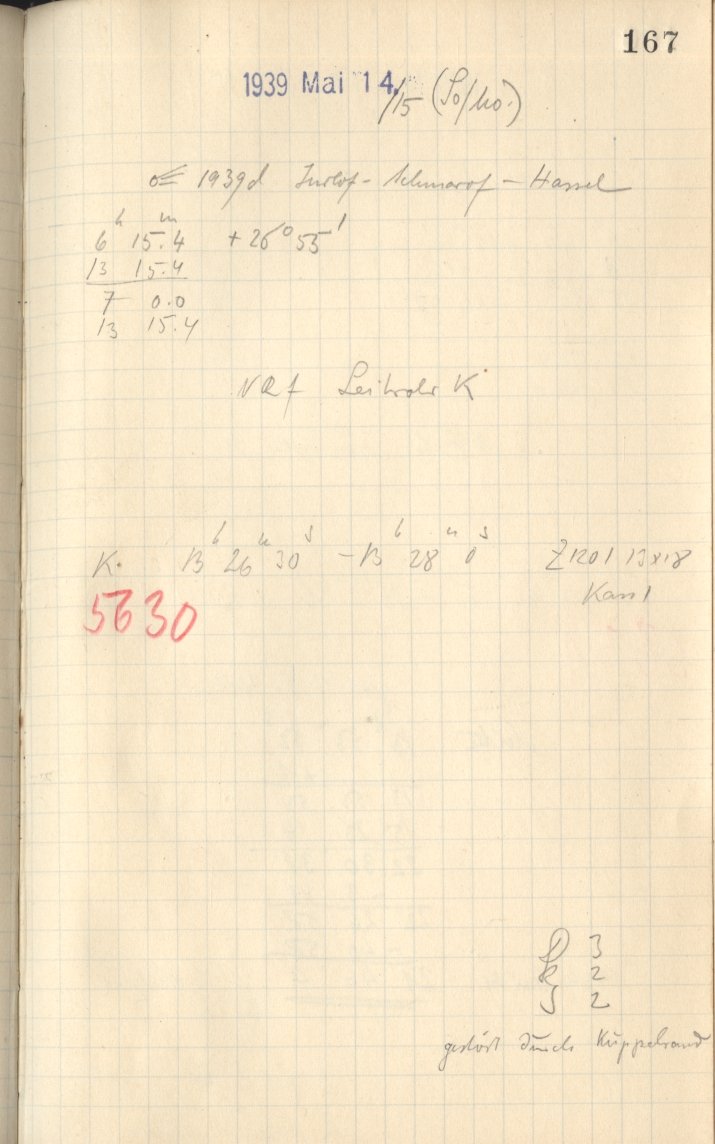 167
1939 Mai 14./15 (So/Mo.)
☄ 1939d Jurlof - Achmarof - Hassel
6h 15.4m + 26° 55'
13 15.4
7 0.0
13 15.4
Leitrohr K
K. 13h 26m 30s - 13h 28m 0s Z 1201 13x18
Kass 1
5630
D 3
R 2
S 2
gestört durch Kuppelrand